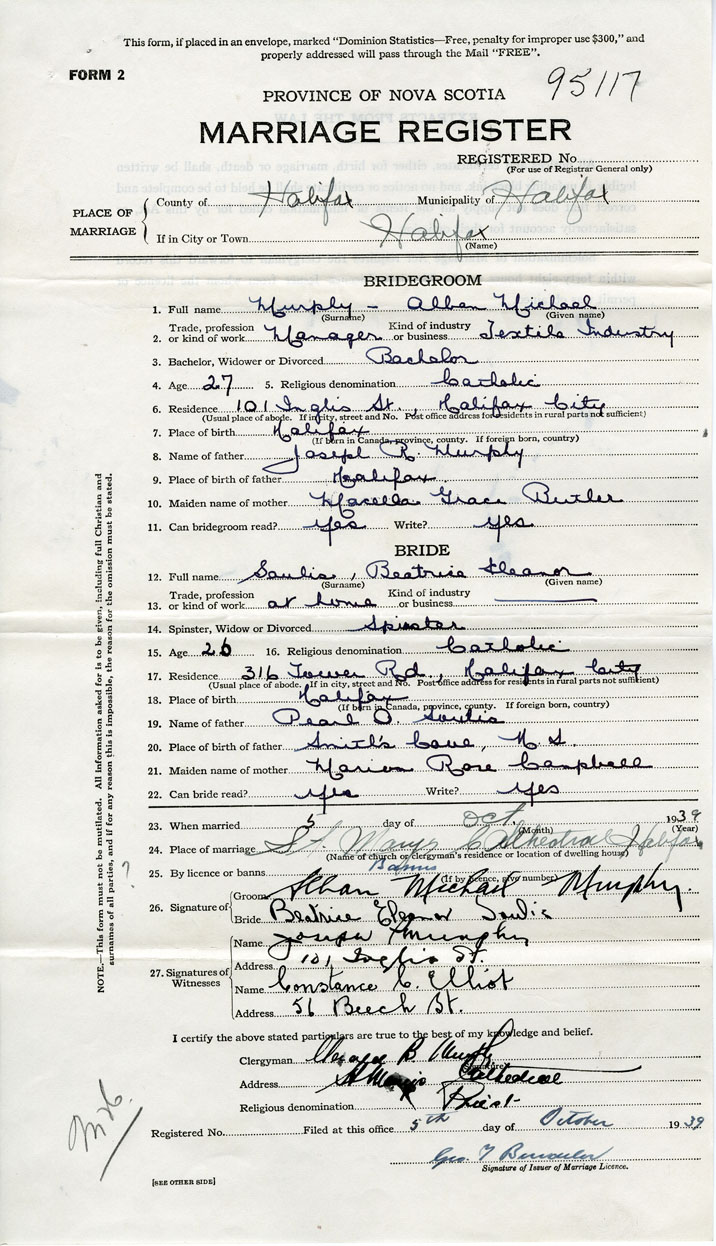 This form, if placed in an envelope, marked “Dominion Statistics—Free, penalty for improper use $300,” and
properly addressed will pass through the Mail “FREE”.
FORM 2
95117
PROVINCE OF NOVA SCOTIA
MARRIAGE REGISTER
REGISTERED No.
(For use of Registrar General only)
PLACE OF MARRIAGE
County of Halifax Municipality of Halifax
If in City or Town Halifax
(Name)
BRIDEGROOM
1. Full name Murphy - Alban Michael
(Surname) (Given name)
2. Trade, profession or kind of work Manager Kind of industry or business Textile Industry
3. Bachelor, Widower or Divorced Bachelor
4. Age 27 5. Religious denomination Catholic
6. Residence 101 Inglis St., Halifax City
(Usual place of abode. If in city, street and No. Post office address for residents in rural parts not sufficient)
7. Place of birth Halifax
(If born in Canada, province, county. If foreign born, country)
8. Name of father Joseph R. Murphy
9. Place of birth of father Halifax
10. Maiden name of mother Grace Butler
11. Can bridegroom read? yes Write? yes
BRIDE
12. Full name Soulis, Beatrice Eleanor
(Surname) (Given name)
13. Trade, profession or kind of work at home Kind of industry or business
14. Spinster, Widow or Divorced Spinster
15. Age 26 16. Religious denomination Catholic
17. Residence 316 Tower Rd., Halifax City
(Usual place of abode. If in city, street and No. Post office address for residents in rural parts not sufficient)
18. Place of birth Halifax
(If born in Canada, province, county. If foreign born, country)
19. Name of father Pearl O. Soulis
20. Place of birth of father Smith's Cove, N.S.
21. Maiden name of mother Marion Rose Campbell
22. Can bride read? yes Write? yes
23. When married 5 day of Oct. 1939
(Month) (Year)
24. Place of marriage St. Marys Cathedral Halifax
(Name of church or clergyman's residence or location of dwelling house)
25. By licence or banns Banns
(If by licence, give number)
26. Signature of
Groom Alban Michael Murphy.
Bride Beatrice Eleanor Soulis
27. Signatures of Witnesses
Name Joseph Murphy
Address 101 Inglis St.
Name Constance C. Elliot
Address 51 Beech St.
I certify the above stated particulars are true to the best of my knowledge and belief.
Clergyman B Murphy
(Signature)
Address St Marys Cathedral
Religious denomination Priest
Registered No. Filed at this office 5th day of October 1939
Geo. T
Signature of Issuer of Marriage Licence.
[SEE OTHER SIDE]
NOTE.—This form must not be mutilated. All Information asked for is to be given, including full Christian and
surnames of all parties, and if for any reason this is impossible, the reason for the omission must be stated.
?